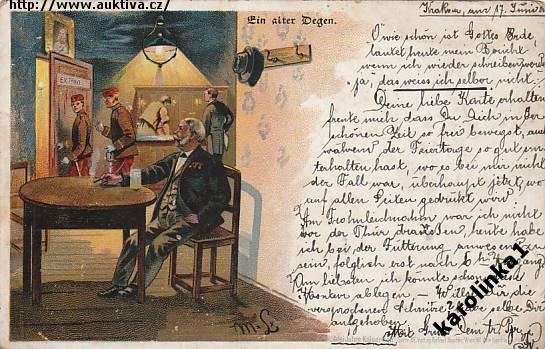 http://www.auktiva.cz/
Ein alter Degen.
Krakau, am 17. Juni
O wie schön ist Gottes Erde
lautet heute mein Bericht
wenn ich wieder schreiben werde
ja, das weiss ich selber nicht.
Deine liebe Karte erhalten
freute mich dass Du Dich in der
schönen Zeit so frei bewegst, auch
während der Feiertage so gut
unterhalten hast, wo es bei mir nicht
der Fall war, überhaupt jetzt, wo
auf allen Seiten gedruckt wird.
Am Frohnleichnahm war ich nicht
vor der Thür draussen, heute habe
ich bei der Fütterung
sein, folglich erst nach 6 hr
Am liebsten ich könnte schon
ablegen – Willst Du die
versprochenen habe selbe Dir
aufgehoben
Mit Gruss Dein
EXTRA
M.L.
karolinka1